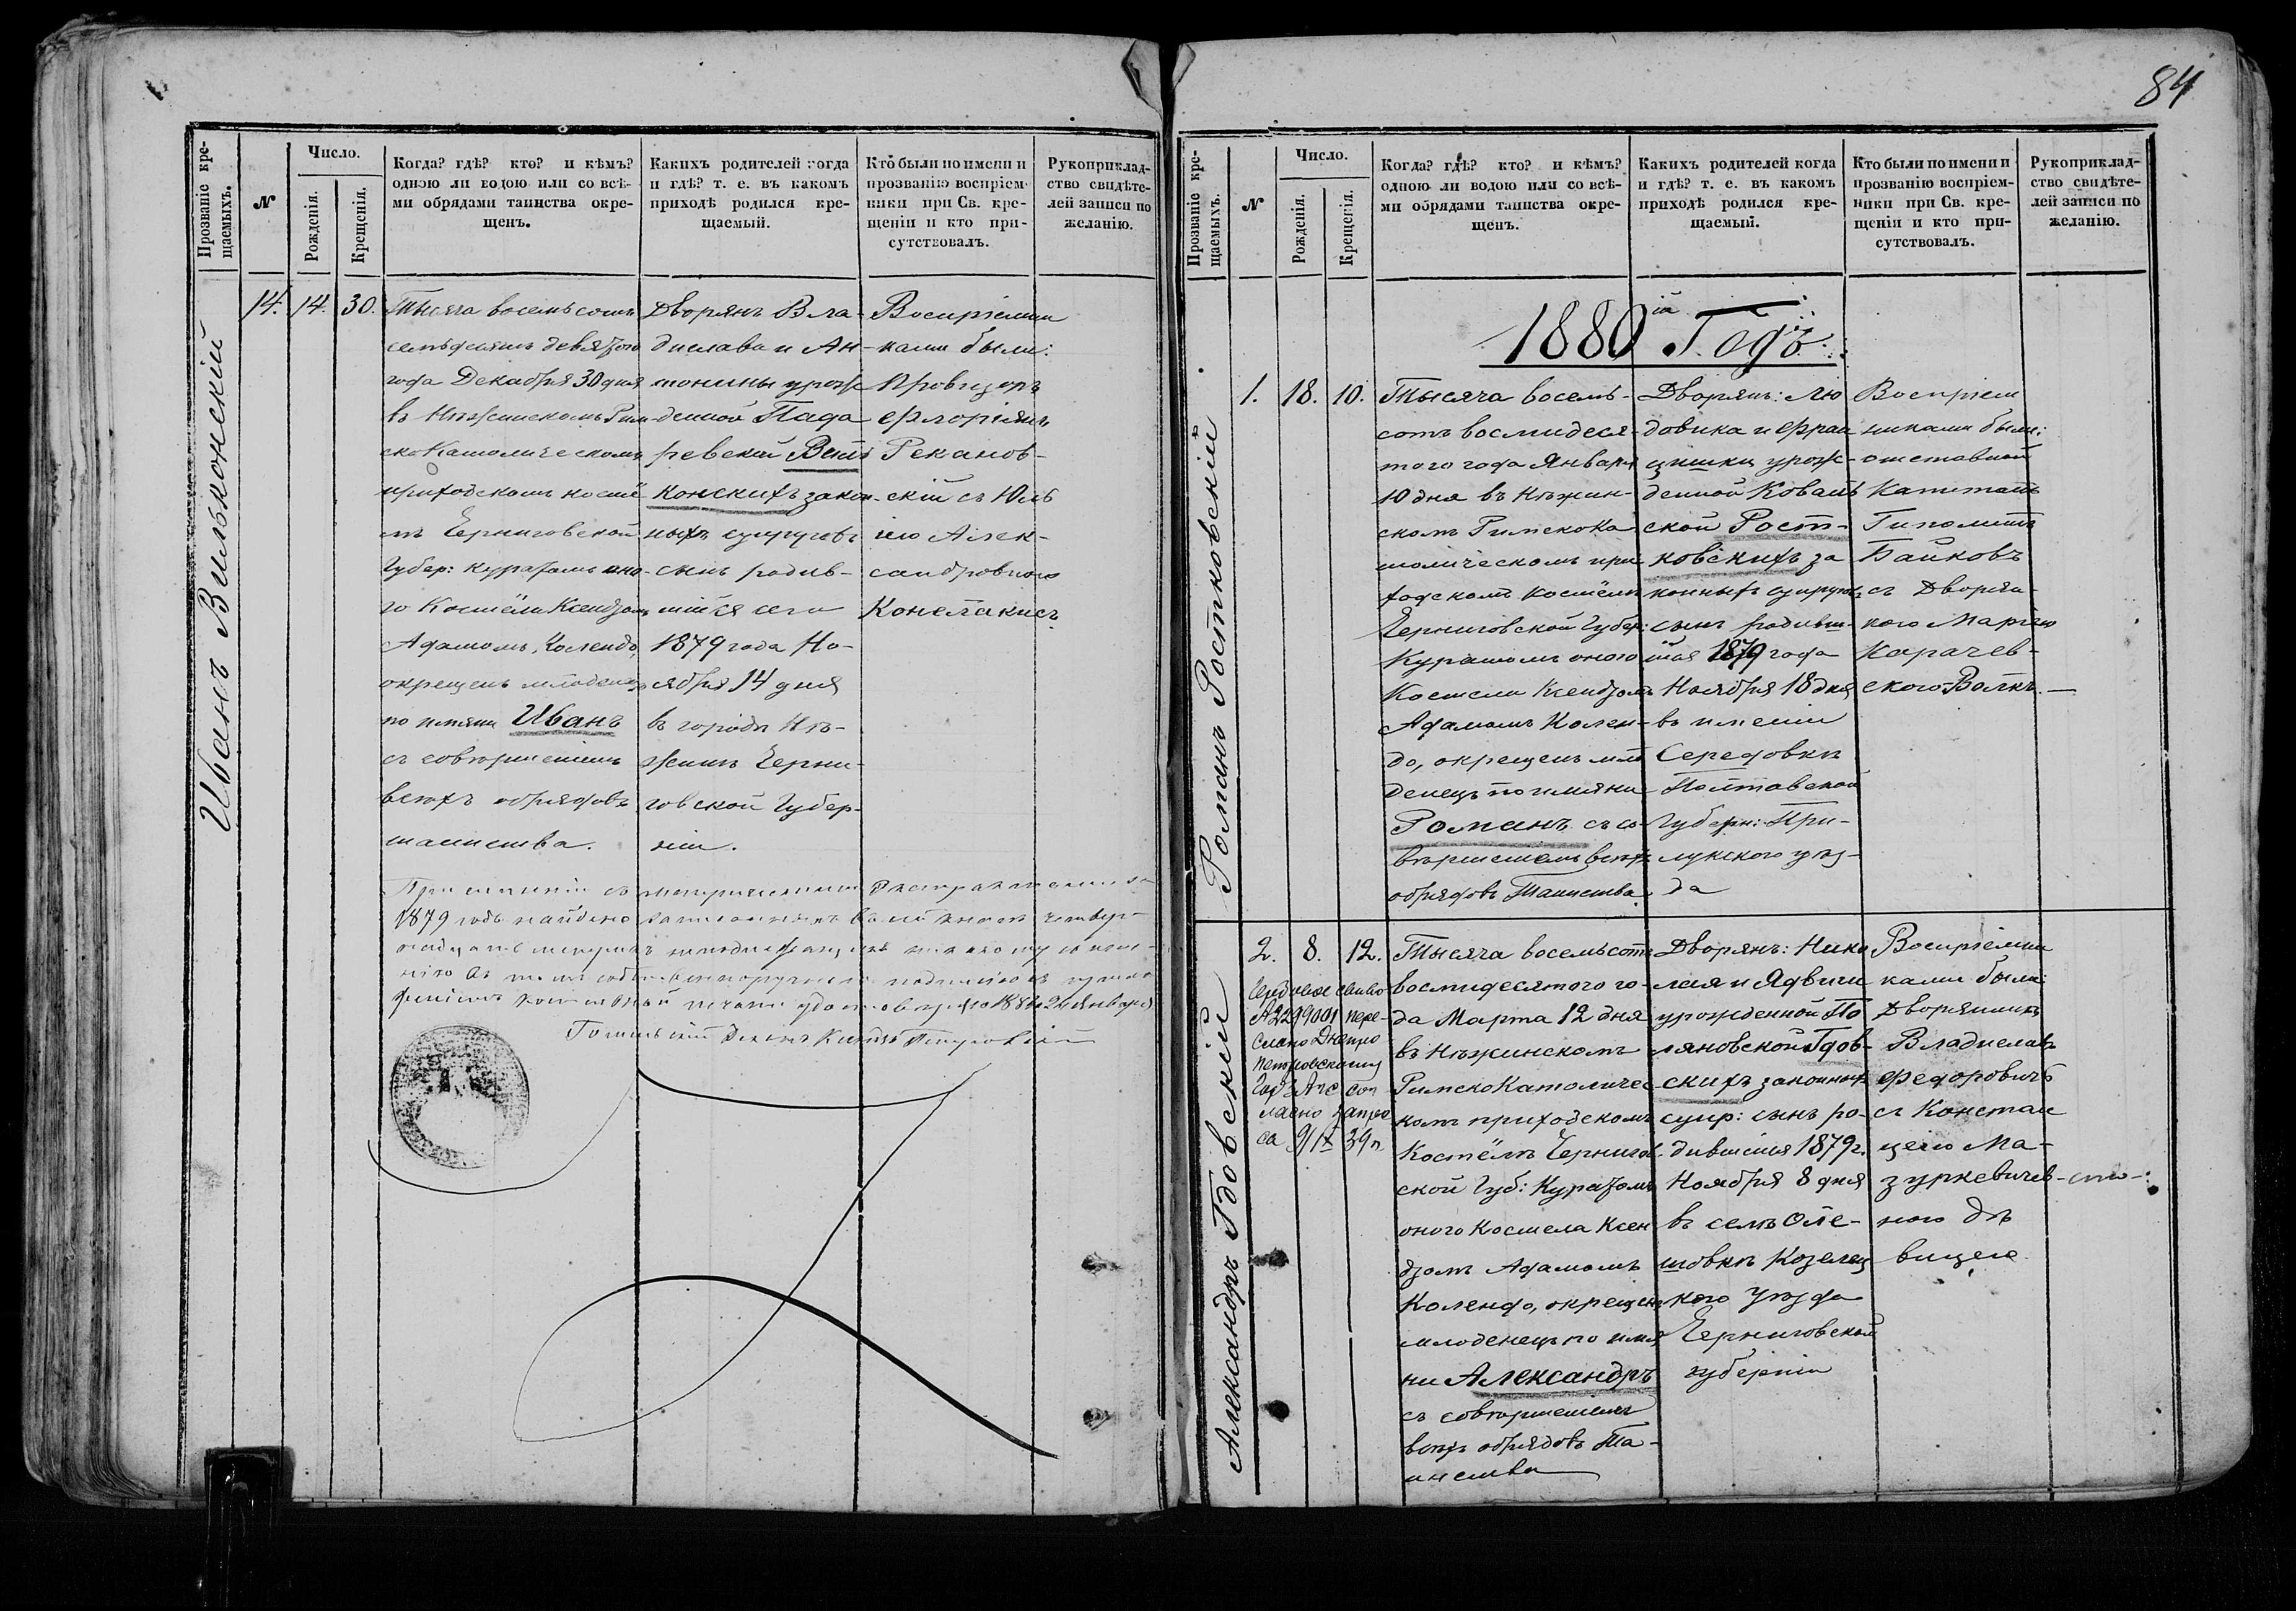 84
Прозваніе кре-
щаемыхъ.
№
Число.
Рожденія.
Крещенія.
Когда? гдѣ? кто? и кѣмъ?
одною ли водою или со всѣ-
ми обрядами таинства окре-
щенъ.
Какихъ родителей когда
и гдѣ? т. е. въ какомъ
приходѣ родился кре-
щаемый.
Кто были по имени и
прозванію воспріем-
ники при Св. кре-
щеніи и кто при-
сутствовалъ.
Рукоприклад-
ство свидѣте-
лей записи по
желанію.
Иванъ Вильконскій
14.
14.
30.
Тысяча восемьсотъ
семьдесятъ девятого
года Декабря 30 дня
въ Нѣжинскомъ Рим-
скоКатолическомъ
приходскомъ костё-
лѣ Черниговской
Губер: Куратомъ оно-
го Костёла Ксендзомъ
Адамомъ Колендо,
окрещенъ младенецъ
по имяни Иванъ
съ совершеніемъ
всѣхъ обрядовъ
таинства.
Дворянъ Вла-
дислава и Ан-
тонины урож
денной Пада
ревской Виль
конскихъ закон-
ныхъ супруговъ
сынъ родив-
шійся сего
1879 года Но-
ября 14 дня
въ городѣ Нѣ-
жинѣ Черни-
говской Губер-
ніи.
Воспріемни
ками были:
Провизоръ
Флоріянъ
Рекановъ-
скій съ Юль
іею Алек-
сандровною
При
1879 годъ найдено
1880 2 января
Прозваніе кре-
щаемыхъ.
№
Число.
Рожденія.
Крещенія.
Когда? гдѣ? кто? и кѣмъ?
одною ли водою или со всѣ-
ми обрядами таинства окре-
щенъ.
Какихъ родителей когда
и гдѣ? т. е. въ какомъ
приходѣ родился кре-
щаемый.
Кто были по имени и
прозванію воспріем-
ники при Св. кре-
щеніи и кто при-
сутствовалъ.
Рукоприклад-
ство свидѣте-
лей записи по
желанію.
1880 Годъ
Романъ Ростковскій
1.
18.
10.
Тысяча восемь-
сотъ восмидеся-
того года Января
10 дня въ Нѣжин-
скомъ РимскоКа
толическомъ при
ходскомъ костёлѣ
Черниговской Губер:
Куратомъ оного
Костела Ксендзомъ
Адамомъ Колен-
до, окрещенъ мла
денецъ по имяни
Романъ съ со-
вершеніемъ всѣхъ
обрядовъ Таинства.
Дворянъ: Лю
довика и Фран
цишки урож-
денной Коваль
ской Рост-
ковскихъ за
конныхъ супруговъ
сынъ родивш-
ійся 1879 года
Ноября 18 дня
въ имѣніи
Середовкѣ
Полтавской
Губерн: При-
лукского уѣз-
да
Воспріем
никами были:
отставной
Капитанъ
Гиполитъ
Байковъ
съ Дворян-
кою Маріею
Карачев-
ского-Волкъ.
Александръ Гдовскій
2.
8.
12.
А 2299001 пере-
слано Днепро
петровскому
Тысяча восемьсотъ
восмидесятого го-
да Марта 12 дня
въ Нѣжинскомъ
РимскоКатоличес-
комъ приходскомъ
Костёлѣ Чернигов.
ской Губ: Куратомъ
оного Костела Ксен
дзомъ Адамомъ
Колендо, окрещенъ
младенецъ по имя
ни Александръ
съ совершеніемъ
всѣхъ обрядовъ Та-
инства
Дворянъ: Нико
лая и Ядвиги
урожденной По
ляновской Гдов-
скихъ законныхъ
супр: сынъ ро-
дившійся 1879 г.
Ноября 8 дня
въ селѣ Оле-
шовкѣ Козелец
кого Уѣзда
Черниговской
губерніи
Воспріемни
ками были:
Дворянинъ
Владиславъ
Федоровичъ
съ Констан
ціею Ма-
зуркевичев-
ною дѣ
вицею